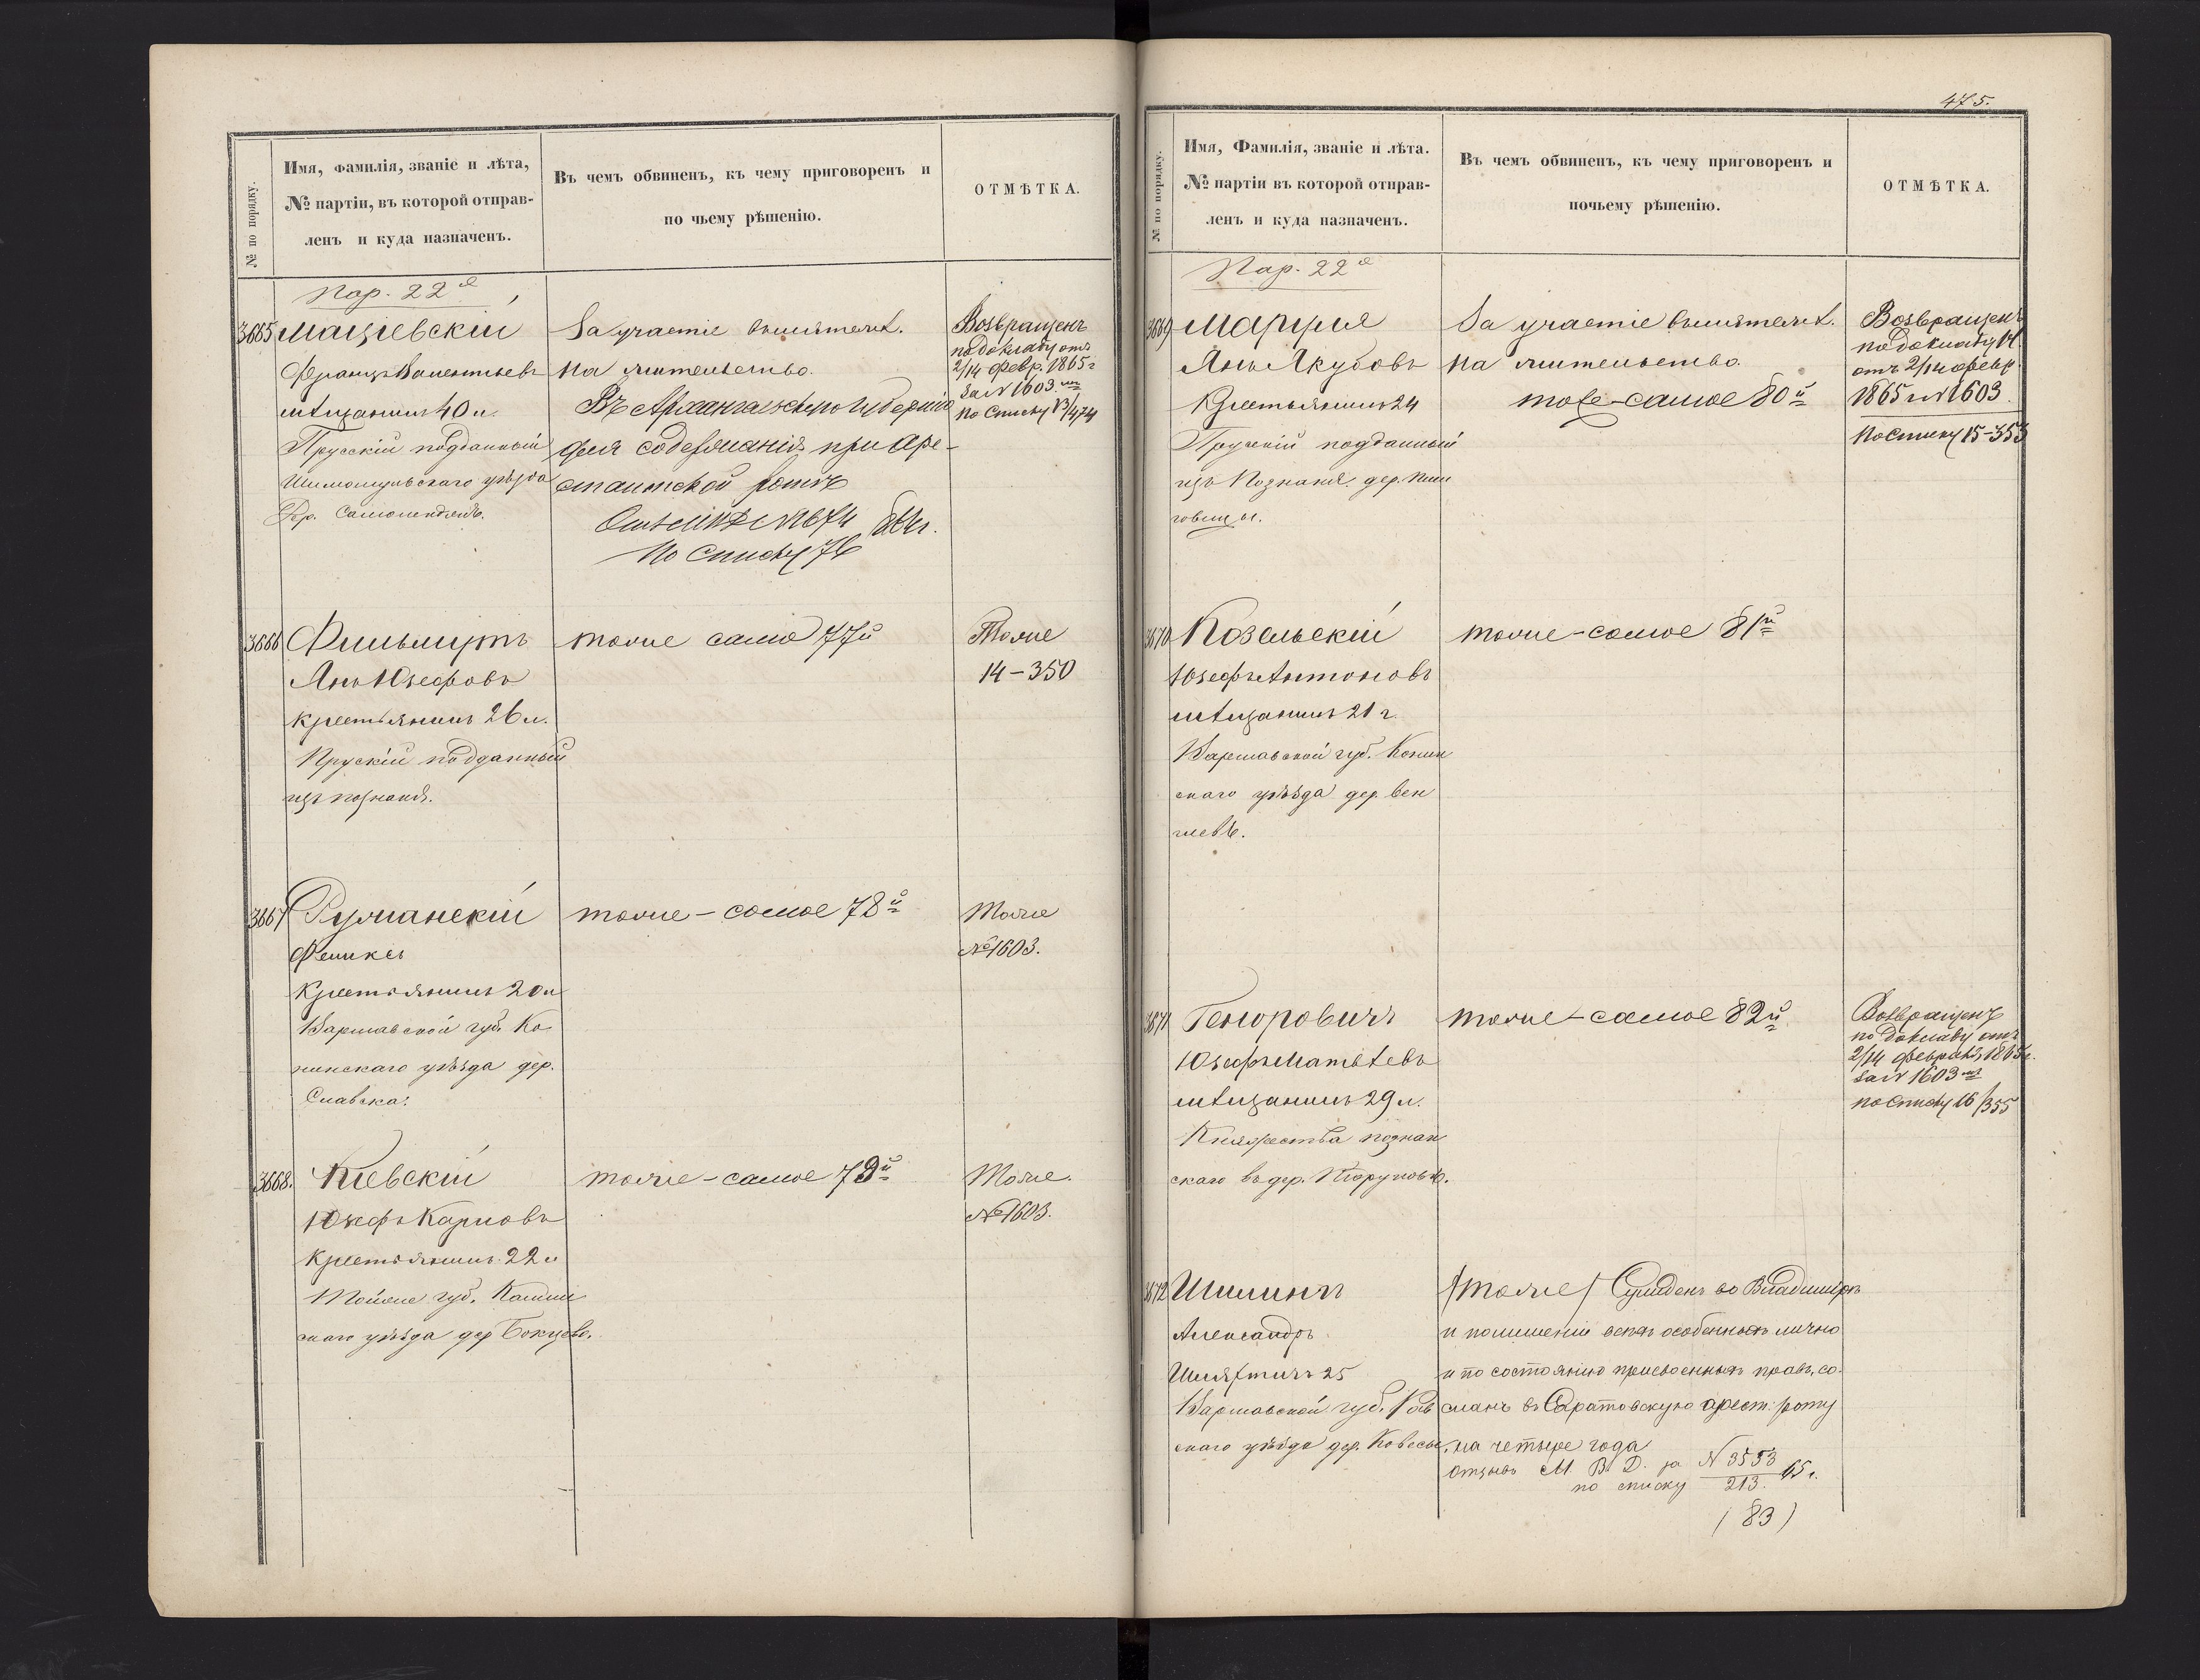 № по порядку.
Имя, фамилія, званіе и лѣта,
№ партіи, въ которой отправ-
ленъ и куда назначенъ.
Въ чемъ обвиненъ, къ чему приговоренъ и
по чьему рѣшенію.
ОТМѢТКА.
Пар. 22я
3665
Маціевскій
Францъ Валентьевъ
мѣщанинъ 40 л.
Прусскій подданный
уѣзда
За участіе въ мятежѣ.
На жительство.
Въ Архангельскую губернію
для содержанія при аре-
стантской ротѣ
№ 1674 1864 г.
По списку 76
Возвращенъ
по докладу отъ
2/14 февр. 1865 г
за № 1603
По списку 13/474
3666
Фильмутъ
Янъ Юзефовъ
крестьянинъ 26 л.
Прускій подданный
изъ Познаня.
тоже само 77й
Тоже
14-350
3667
Руманскій
Феликсъ
Крестьянинъ 20 л
Варшавской губ. Ко
нинскаго уѣзда дер.
Славска.
тоже-самое 78й
Тоже
№ 1603.
3668.
Кіевскій
Юзефъ Карловъ
Крестьянинъ 22 л
Тойже губ. Калиш
скаго уѣзда дер.
тоже-самое 79й
Тоже.
№ 1603.
475.
№ по порядку.
Имя, Фамилія, званіе и лѣта.
№ партіи въ которой отправ-
ленъ и куда назначенъ.
Въ чемъ обвиненъ, къ чему приговоренъ и
почьему рѣшенію.
ОТМѢТКА.
Пар. 22я
3669
Янъ Якубовъ
Крестьянинъ 24
Прускій подданный
изъ Познаня. дер.
За участіе въ мятежѣ.
На жительство.
тоже-самое 80й
Возвращенъ
по докладу
отъ 2/14 февр.
1865 г № 1603
По списку 15-353
3670
Козельскій
Юзефъ Антоновъ
мѣщанинъ 21 г.
Варшавской губ. Конин
скаго уѣзда дер. Вен
тоже-самое 81й
3671
Юзефъ Матвѣевъ
мѣщанинъ 29 л.
Княжества познан
скаго въ дер.
тоже-самое 82й
Возвращенъ
по докладу отъ
2/14 февраля 1865 г.
за № 1603
по списку 16/355
3672
Шилингъ
Александръ
Шляхтичъ 25
Варшавской губ. Рав
скаго уѣзда дер. Ковесы
/тоже/ Сужденъ во Владимірѣ
и по лишеніи всѣхъ особенныхъ лично
и по состоянію присвоенныхъ правъ, со-
сланъ въ Саратовскую арест. роту
на четыре года
отзывъ М. В. Д. за № 3553 65 г.
по списку 213.
(83)